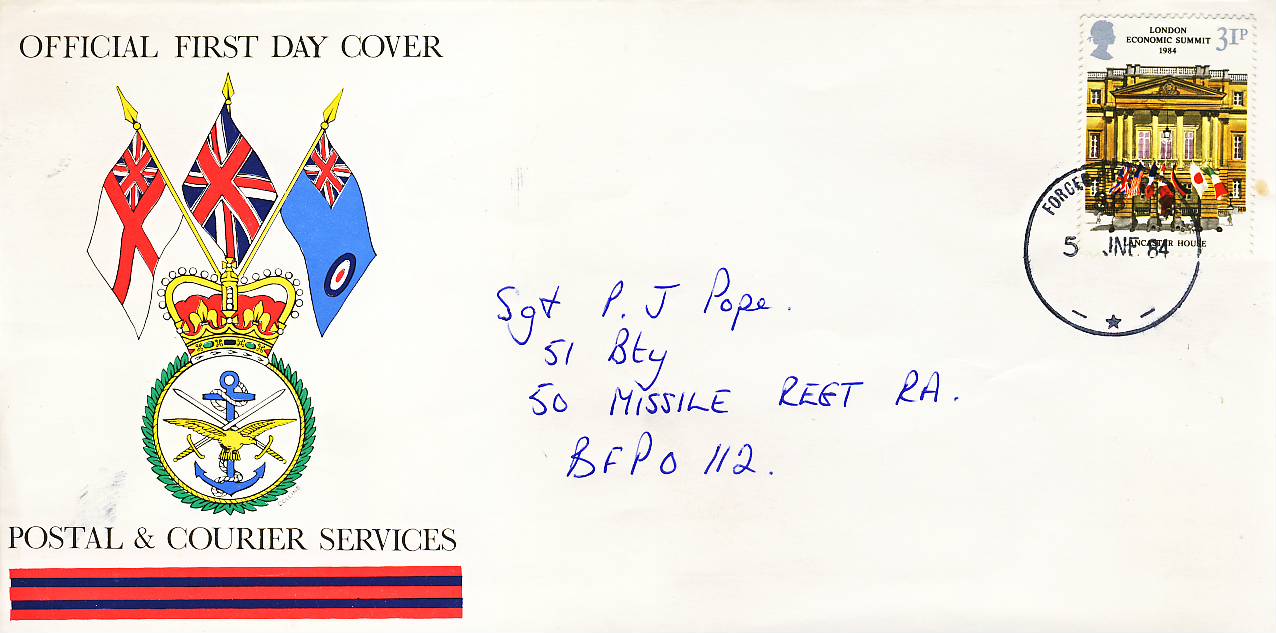 OFFICIAL FIRST DAY COVER
LONDON
ECONOMIC SUMMIT
1984
31P
5 JNE 84
LANCASTER HOUSE
Sgt P. J Pope.
51 Bty
50 MISSILE REGT RA.
BFPO 112.
POSTAL & COURIER SERVICES